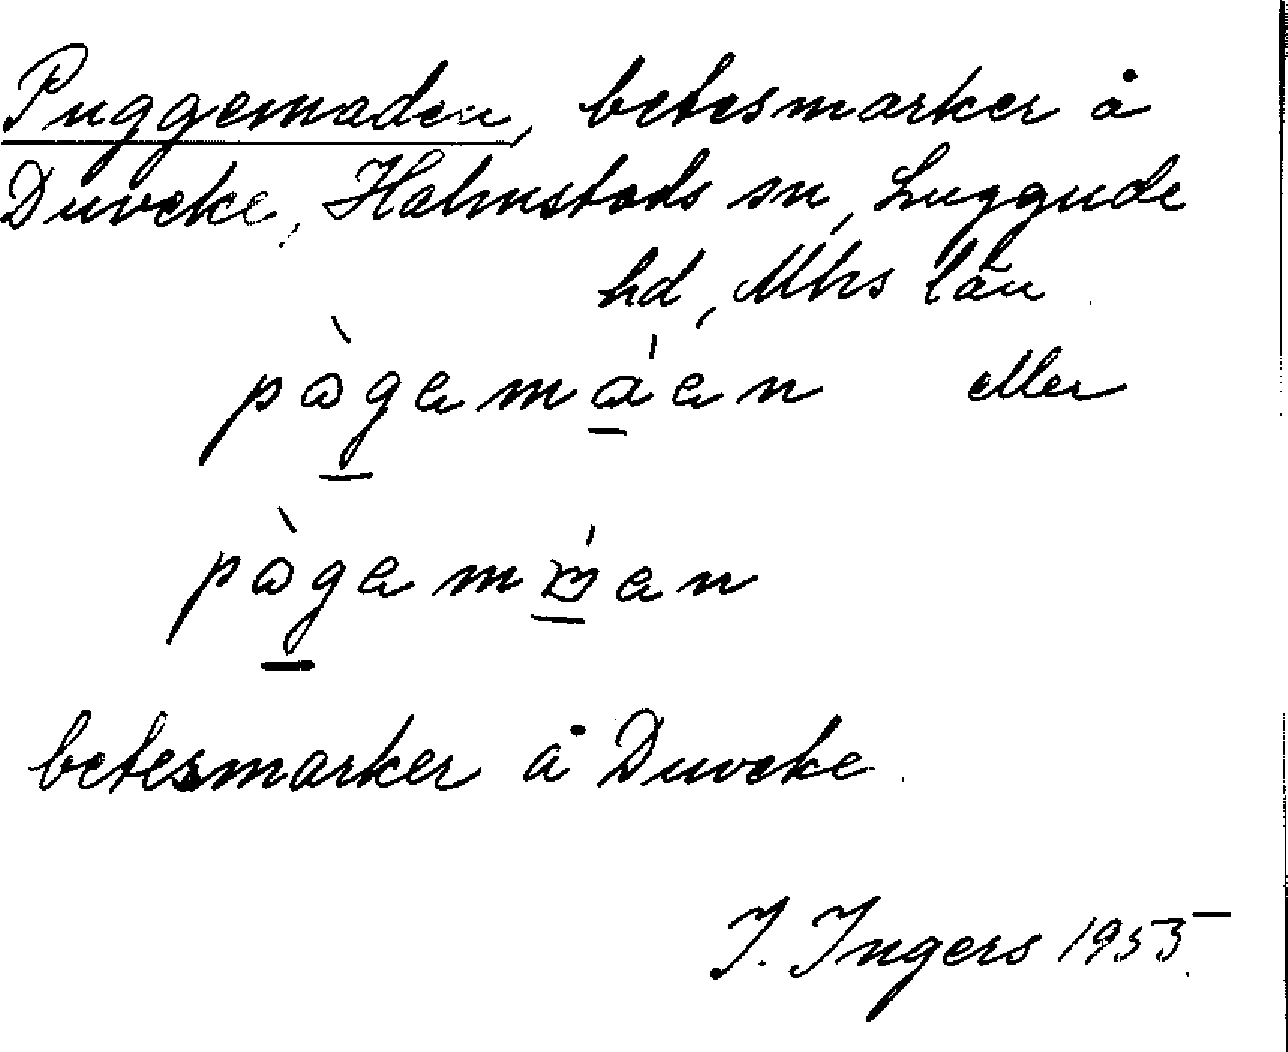 Puggemaden, betesmarker å
Duveke, Halmstads sn, Luggude
hd, Mhs län
pàgamáen eller
pàgam
betesmarker å Duveke.
I. Ingers 1955.